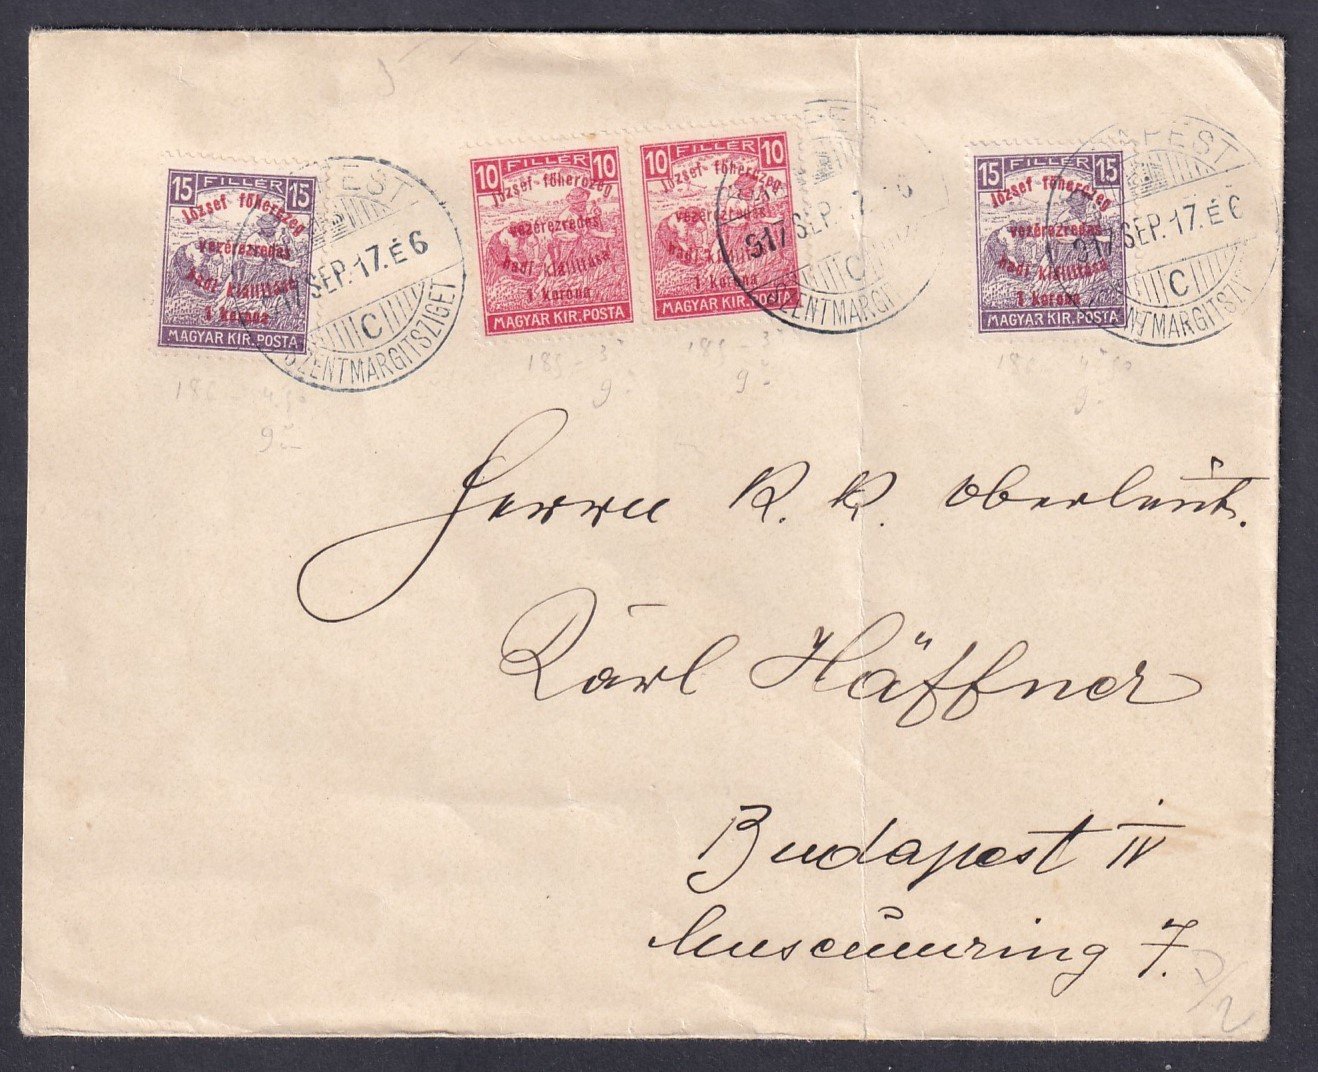 15 FILLER 15
József főherczeg
vezérezredes
hadi kiállítása
1 korona
MAGYAR KIR. POSTA
PEST
917 SEP. 17. É 6
C
SZENTMARGITSZIGET
10 FILLER 10
József-főherczeg
vezérezredes
hadi kiállítása
1 korona
MAGYAR KIR. POSTA
10 FILLER 10
József-főherczeg
vezérezredes
hadi kiállítása
1 korona
MAGYAR KIR. POSTA
917 SEP. 17 6
C
SZENTMARGIT
15 FILLER 15
József főherczeg
vezérezredes
hadi kiállítása
1 korona
MAGYAR KIR. POSTA
APEST
917 SEP. 17. É 6
C
NTMARGITSZI
Herrn K. K. Oberleut.
Karl Häffner
Budapest IV
Museumring 7.